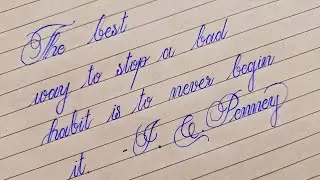 The best
way to stop a bad
habit is to never begin
it. -J. C. Penney